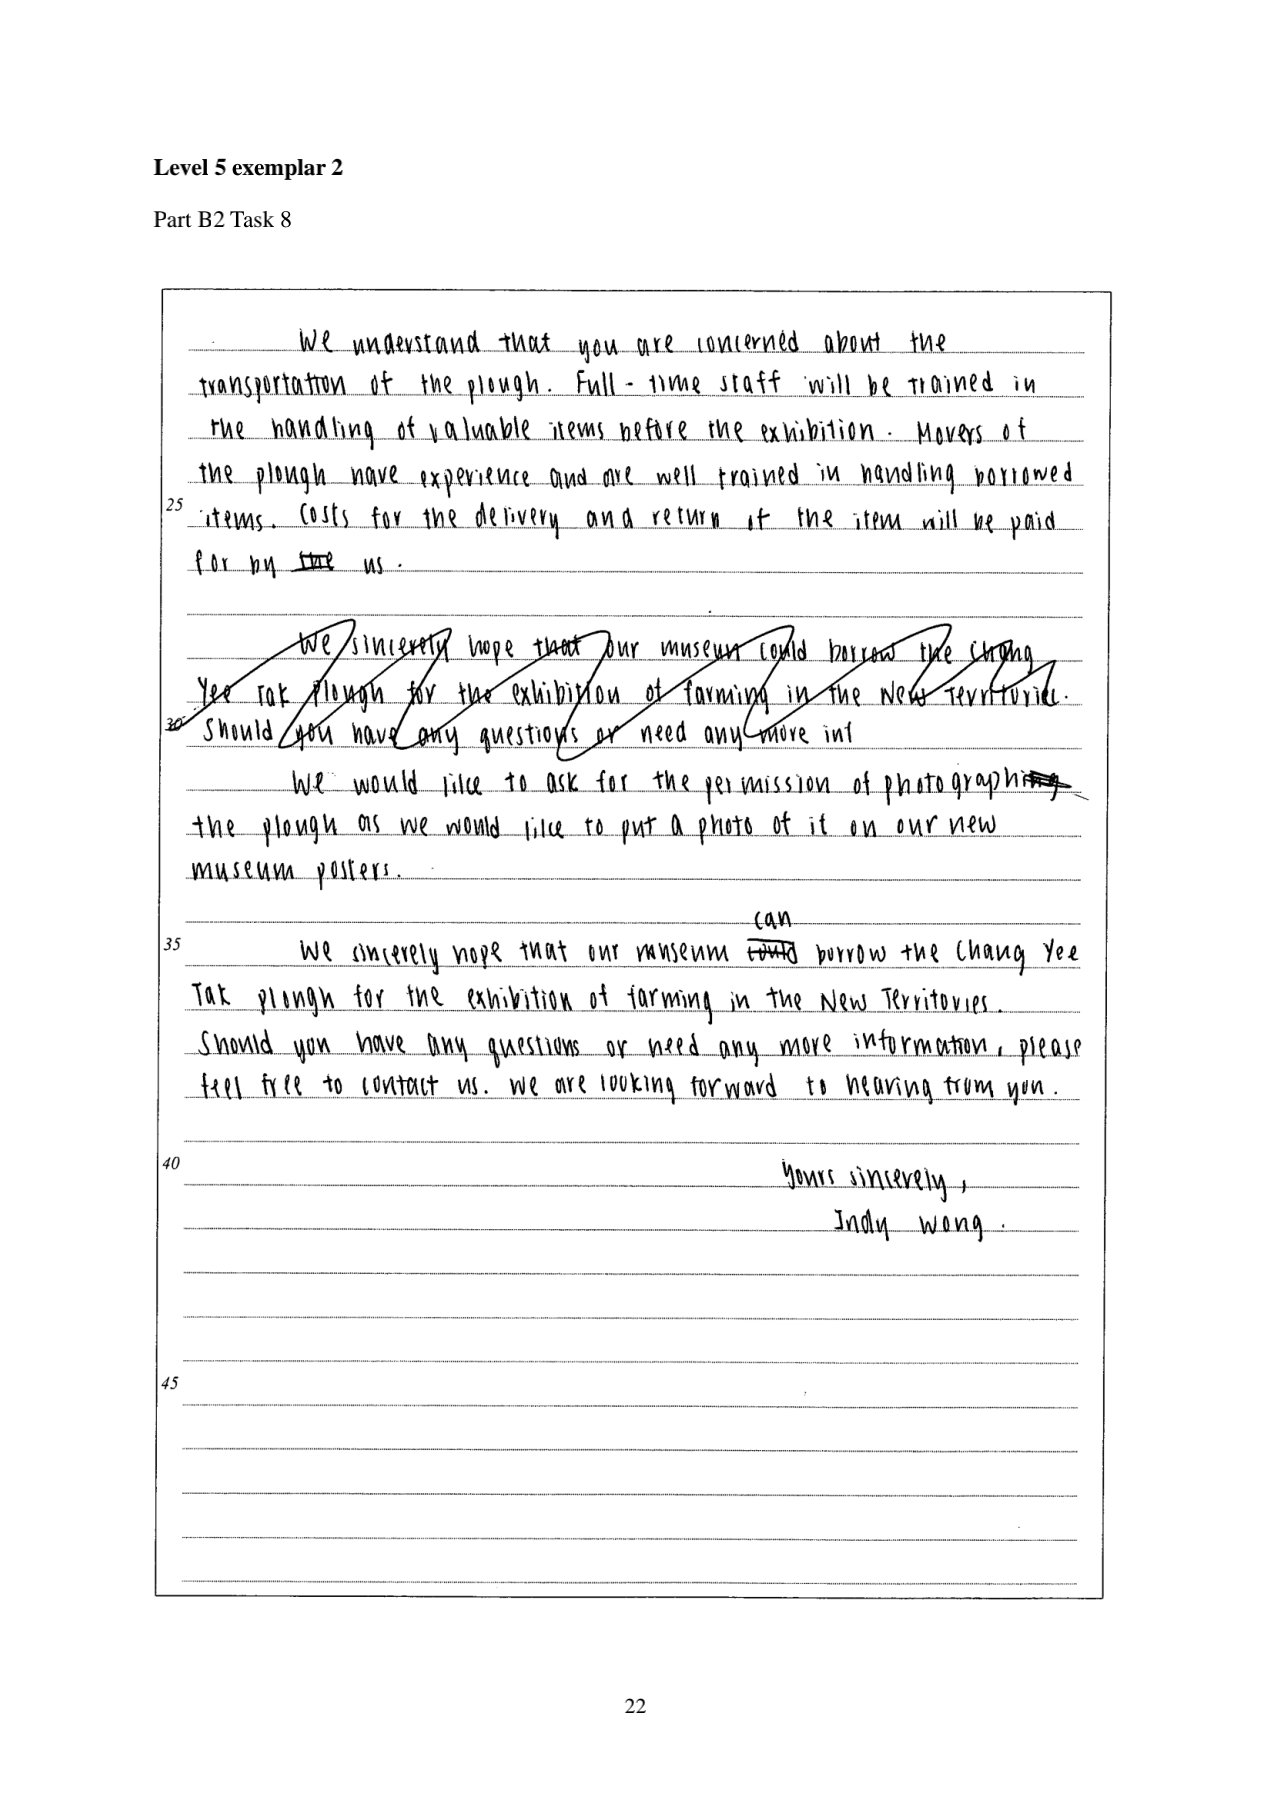 Level 5 exemplar 2
Part B2 Task 8
We understand that you are concerned about the
transportation of the plough. Full-time staff will be trained in
the handling of valuable items before the exhibition. Movers of
the plough have experience and are well trained in handling borrowed
25
items. Costs for the delivery and return of the item will be paid
for by the us.
We sincerely hope that our museum could borrow the Chang
Yee Tak Plough for the exhibition of farming in the New Territories.
30
Should you have any questions or need any more inf
We would like to ask for the permission of photographing
the plough as we would like to put a photo of it on our new
museum posters.
can
35
We sincerely hope that our museum could borrow the Chang Yee
Tak plough for the exhibition of farming in the New Territories.
Should you have any questions or need any more information, please
feel free to contact us. We are looking forward to hearing from you.
40
Yours sincerely,
Indy Wong.
45
22